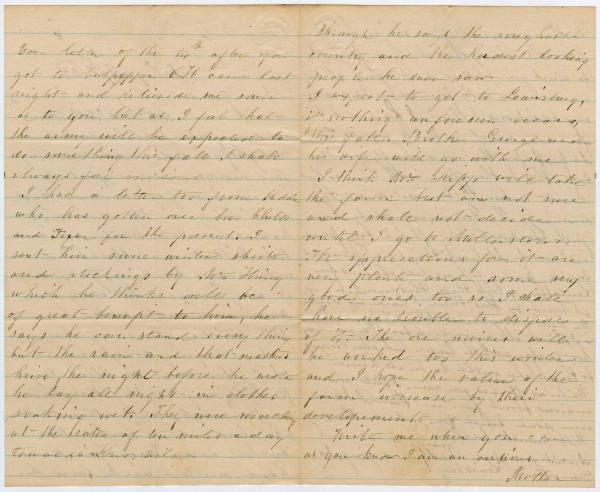 Your letter of the 14th after you
got to Culpepper C.H. came last
night and relieved me some
as to you but as I feel that
the army will be expected to
do something this fall I shall
always feel
I had a letter too from
who has gotten over his Chills
and Fever for the present. I
sent him some winter shirts
and stockings by Mr
which he thinks will be
of great benefit to him, he
says he can stand every thing
but the rain and that makes
him, the night before he wrote
he lay all night in clothes
soaking wet. They were marching
at the rate of ten miles a day
towards Knoxville
he says the roughest
country and the hardest looking
people he ever saw
I expect to get to Lewisburg,
if nothing unforeseen occurs,
this fall. Brother George and
his wife will go with me
I think Mr will take
the farm but am not sure
and shall not decide
until I go to Milltown
The applications for it are
very plenty and some very
good ones too so I shall
have no trouble to dispose
of it. The ore mines will
be worked too this winter
and I hope the value of the
farm increase by their
developement
Write me when you can
as you know I am an anxious
Mother